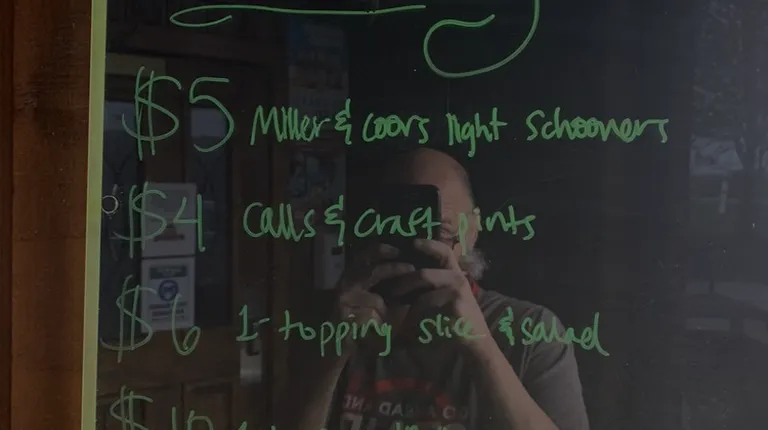 $5 Miller & Coors light Schooners
$4 Calls & Craft pints
$6 1-topping slice & salad
$10